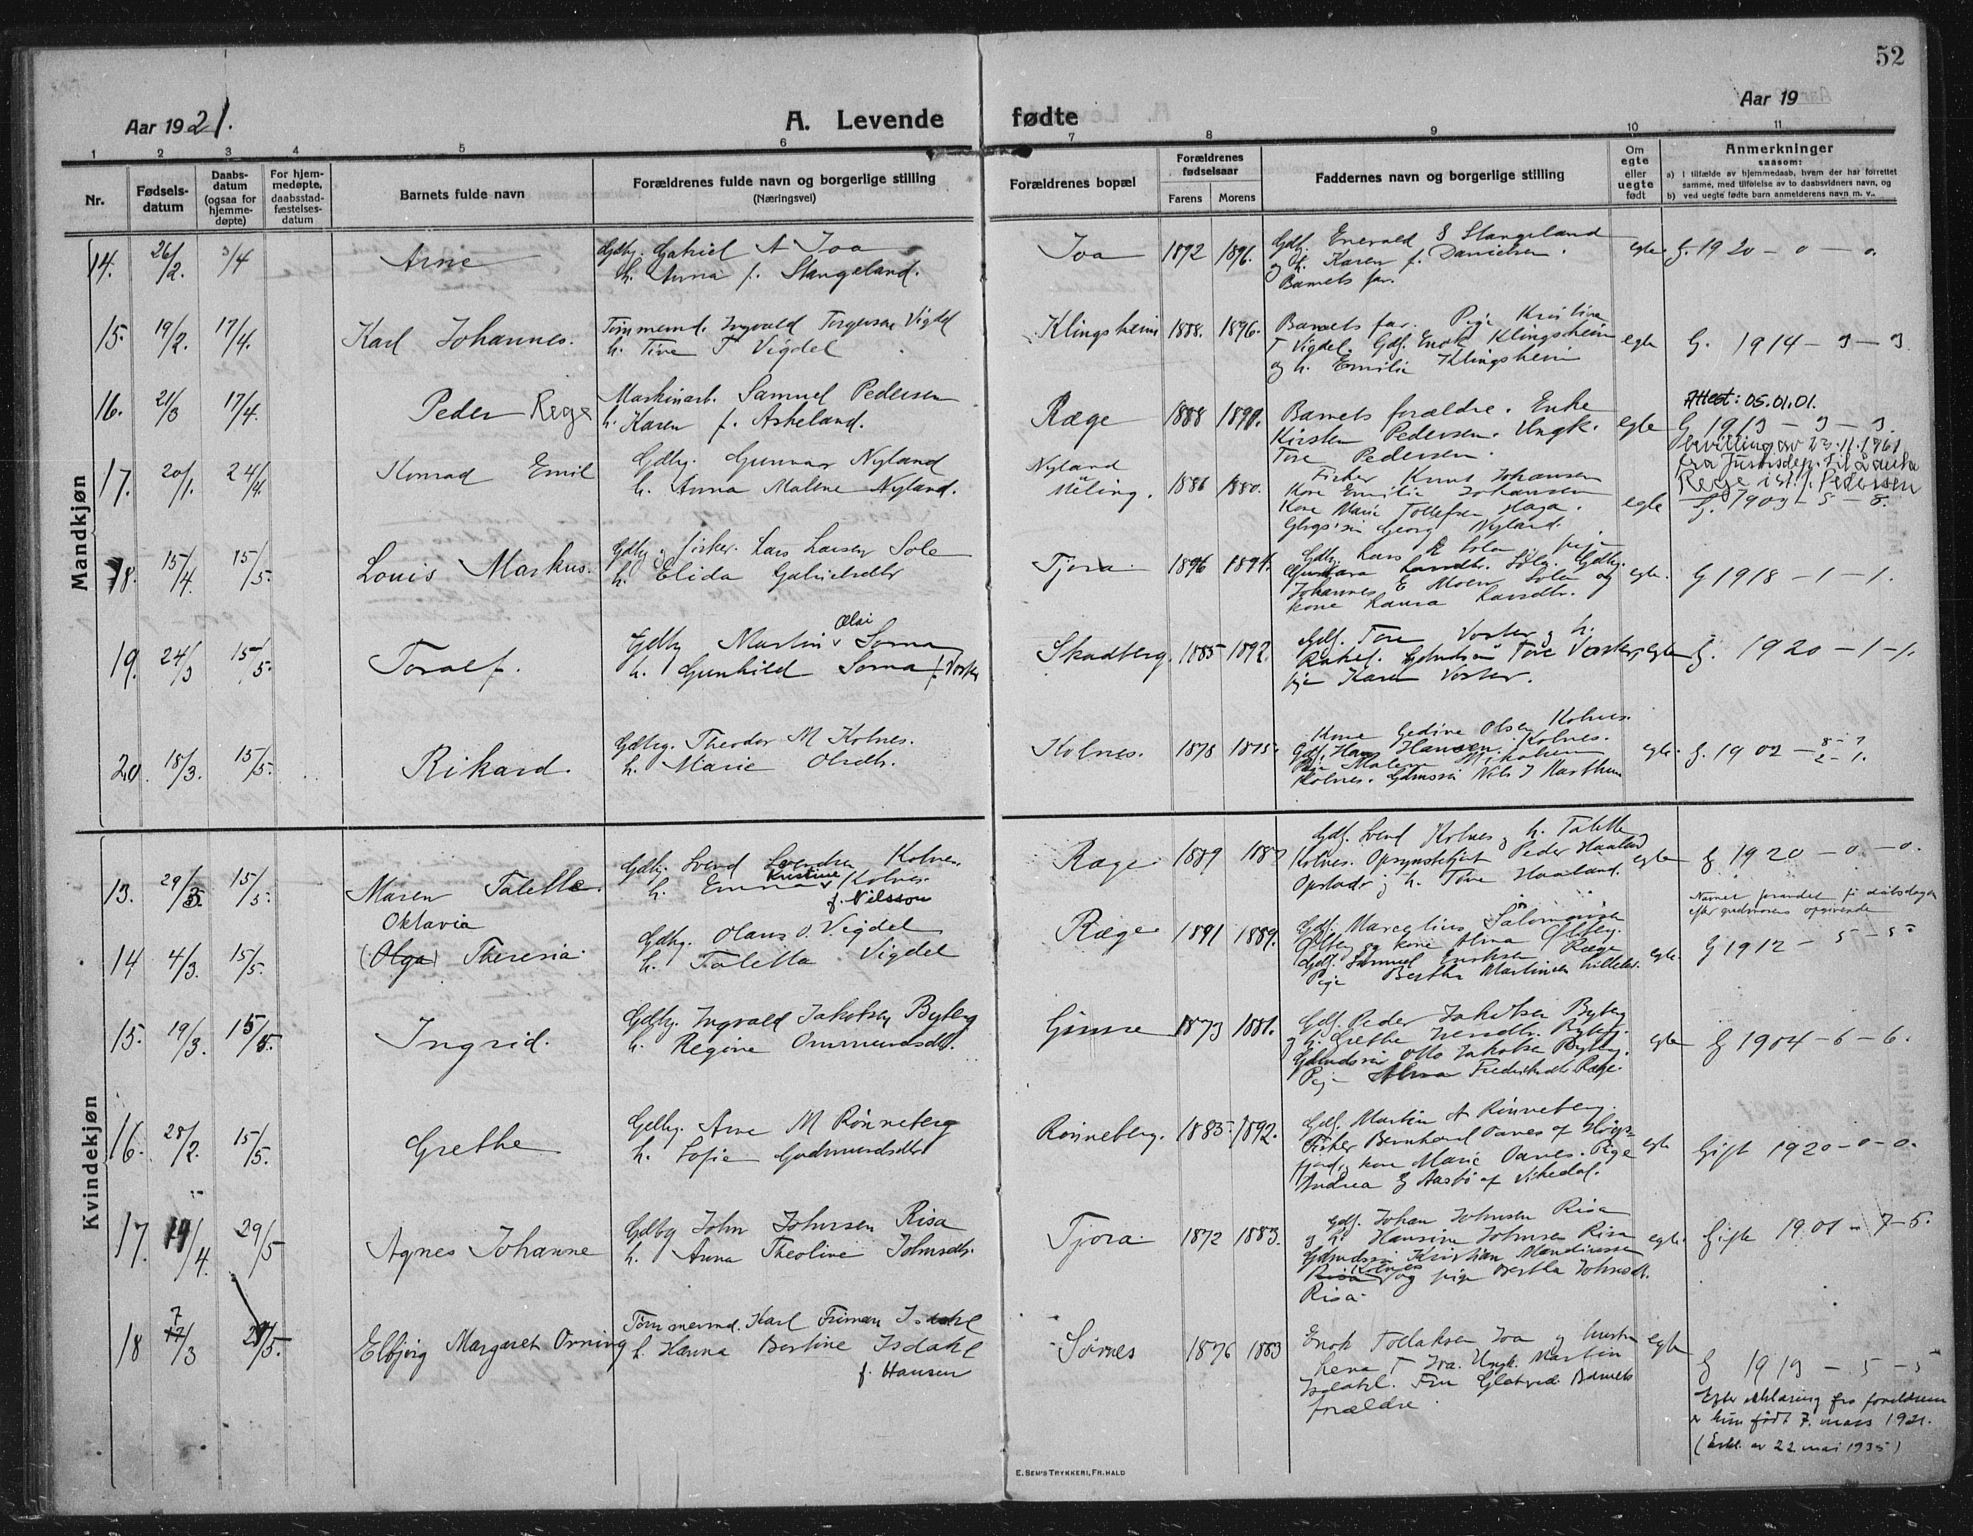 52
Aar 1921.
A. Levende fødte
Aar 19
1 2 3 4 5 6 7 8 9 10 11
Nr.
Fødsels-
datum
Daabs-
datum
(ogsaa for
hjemme-
døpte)
For hjem-
medøpte,
daabsstad-
fæstelses-
datum
Barnets fulde navn
Forældrenes fulde navn og borgerlige stilling
(Næringsvei)
Forældrenes bopæl
Forældrenes
fødselsaar
Farens Morens
Faddernes navn og borgerlige stilling
Om
egte
eller
uegte
født
Anmerkninger
saasom:
a) i tilfælde av hjemmedaab, hvem der har forrettet
samme, med tilføielse av to daabsvidners navn, og
b) ved uegte fødte barn anmelderens navn m. v..
Mandkjøn
14. 26/2. 3/4 Arne
Gdbg. Gabriel A Joa
h. Anna f. Stangeland.
Joa 1892 1896.
Gdbg. Enevald S Stangeland
og h. Karen f. Danielsen.
Barnets far.
egte G. 1920 - 0 - 0.
15. 19/2. 17/4. Karl Johannes.
Tømmermd. Ingvald Torgersen Vigdel
h. Tine T Vigdel
Klingsheim 1888. 1896.
Barnets far. Pige Kristine
T Vigdel. Gdbg. Enok Klingsheim
og h. Emilie Klingsheim
egte G. 1914 - 3 - 3.
16. 21/3 17/4. Peder Rege
Maskinarb. Samuel Pedersen
h. Karen f. Askeland.
Ræge 1888 1890.
Barnets forældre. Enke
Kirsten Pedersen. Ungk.
Tore Pedersen.
egte
Attest: 05.01.01.
G 1913 - 3 - 3.
bevilling av 23.11.1961
fra Justisdep. til å anta
Rege i st. f. Pedersen
17. 20/1. 24/4. Konrad Emil
Gdbg. Gunnar Nyland
h. Anna Malene Nyland.
Nyland
Meling. 1886 1880.
Fisker Knut Johansen
Kone Emilie Johansen
Kone Marie Tollefsen Haga.
Georg Nyland.
egte G. 1909 - 5 - 8.
18. 15/4. 15/5. Louis Markus.
Gdbg. & fisker. Lars Larsen Sole
h. Elida Gabrielsdtr
Tjora. 1896 1891.
Gdbg. Lars E Sola pige
Gunhara Larsdtr. Sola. Gdbg.
Johannes E Moen Sola og
kone Laura Larsdtr.
egte. G 1918 - 1 - 1.
19. 24/3 15/5. Toralf.
Gdbg Martin Olai Soma
h. Gunhild Soma f. Vorter
Skadberg. 1885 1892.
Gdbg. Tore Vorter & h.
Rakel. Gdmdssøn Tore Vorter,
pige Karen Vorter.
egte G. 1920 - 1 - 1.
20. 18/3. 15/5. Rikard.
Gdbg. Theodor M Kolnes.
h. Marie Olsdtr.
Kolnes. 1878 1875.
Kone Gedine Olsen Kolnes.
Gdbg. Hans Hansen Kolnes.
Pige Malene Mikalsen
Kolnes. Gdmssøn Nils J Harthun
egte. G. 1902 - 8 - 7
2 - 1.
Kvindekjøn
13. 29/3. 15/5. Maren Talette.
Gdbg. Svend Svendsen Kolnes.
h. Emma Kristine Kolnes.
f. Nilsson
Ræge. 1889 1887
Gdbg. Svend Kolnes og h. Talette
Kolnes. Opsynsbetjent Peder Haaland
Opstad og h. Tine Haaland.
egte G. 1920 - 0 - 0.
14 4/3. 15/5. Oktavia
(Olga) Theresia.
Gdbg. Olaus O. Vigdel
h. Taletta Vigdel
Ræge 1891 1889.
Gdbg. Marcelius Salomonsen
Ølberg og kone Alma Ølberg.
Gdbg. Samuel Eriksen Ræge
Pige Bertha Martinsen
egte.
Navnet forandret på dåbsdagen
efter gudmorens opgivende
G 1912 - 5 - 5
15. 19/3. 15/5. Ingrid.
Gdbg. Ingvald Jakobsen Byberg
h. Regine Ommundsdtr.
Gimre 1873 1881.
Gdbg. Peder Jakobsen Byberg
og h. Grethe Iversdtr. Byberg.
Gdmdssøn Otto Jakobsen Byberg.
Pige Alma Fredriksdtr Ræge.
egte G 1904 - 6 - 6.
16. 28/2. 15/5. Grethe
Gdbg. Arne M Rønneberg
h. Sofie Gudmundsdtr
Rønneberg. 1885. 1892.
Gdbg. Martin A Rønneberg.
Fisker Bernhard Oanes af Høgs-
fjord, og kone Marie Oanes. Pige
Andrea G Aasbø af Vikedal.
egte Gift 1920 - 0 - 0.
17. 19/4. 29/5 Agnes Johanne
Gdbg John Johnsen Risa
h. Anna Theoline Johnsdtr.
Tjora. 1872 1883.
Gdbg. Johan Johnsen Risa
og h. Hansine Johnsen Risa
Gdmdssøn Kristian Mandiussen
Risa Kolnes og pige Bertha Johnsdtr.
Risa.
egte. Gifte 1901 - 7 - 6.
18 7
17/3 29/5. Elbjørg Margaret Orning
Tømmermd. Karl Friman Isdahl
h. Hanna Bertine Isdahl
f. Hansen
Sørnes 1876 1883
Enok Tollaksen Joa og hustru
Lena T Joa. Ungk. Martin
Isdahl. Fru Glatved. Barnets
forældre.
egte G 1913 - 5 - 5
Efter erklæring fra foreldrene
er hun født 7. mars 1921.
(Erkl. av 22 mai 1935)
E. Sem's Trykkeri, Fr. Hald